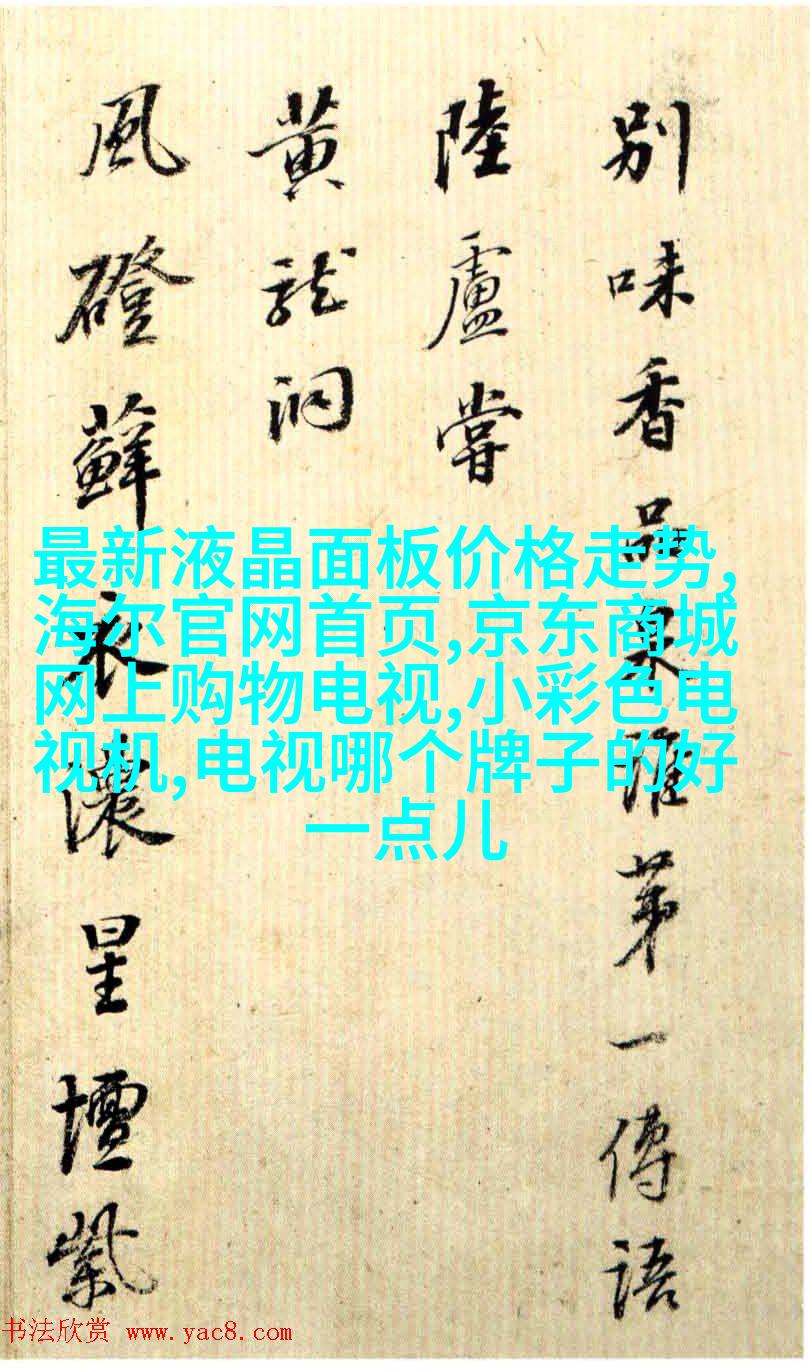 别味香品泉誰第一傳語
陸盧嘗
黄龍洞
風磴蘚衣濃星壇紫
最新液晶面板价格走势,
海尔官网首页,京东商城
网上购物电视,小彩色电
视机,电视哪个牌子的好
一点儿
书法欣赏 www.yac8.com